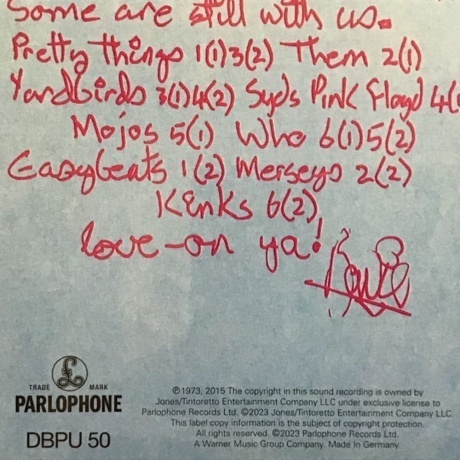 Some are still with us.
Pretty things 1(1)3(2) Them 2(1)
Yardbirds 3(1)4(2) Syd's Pink Floyd 4(
Mojos 5(1) Who 6(1)5(2)
Easybeats 1(2) Merseys 2(2)
Kinks 6(2)
love-on ya!
Bowie
TRADE MARK
PARLOPHONE
DBPU 50
℗1973, 2015 The copyright in this sound recording is owned by
Jones/Tintoretto Entertainment Company LLC under exclusive license to
Parlophone Records Ltd. ©2023 Jones/Tintoretto Entertainment Company LLC.
This label copy information is the subject of copyright protection.
All rights reserved. ©2023 Parlophone Records Ltd.
A Warner Music Group Company. Made In Germany.